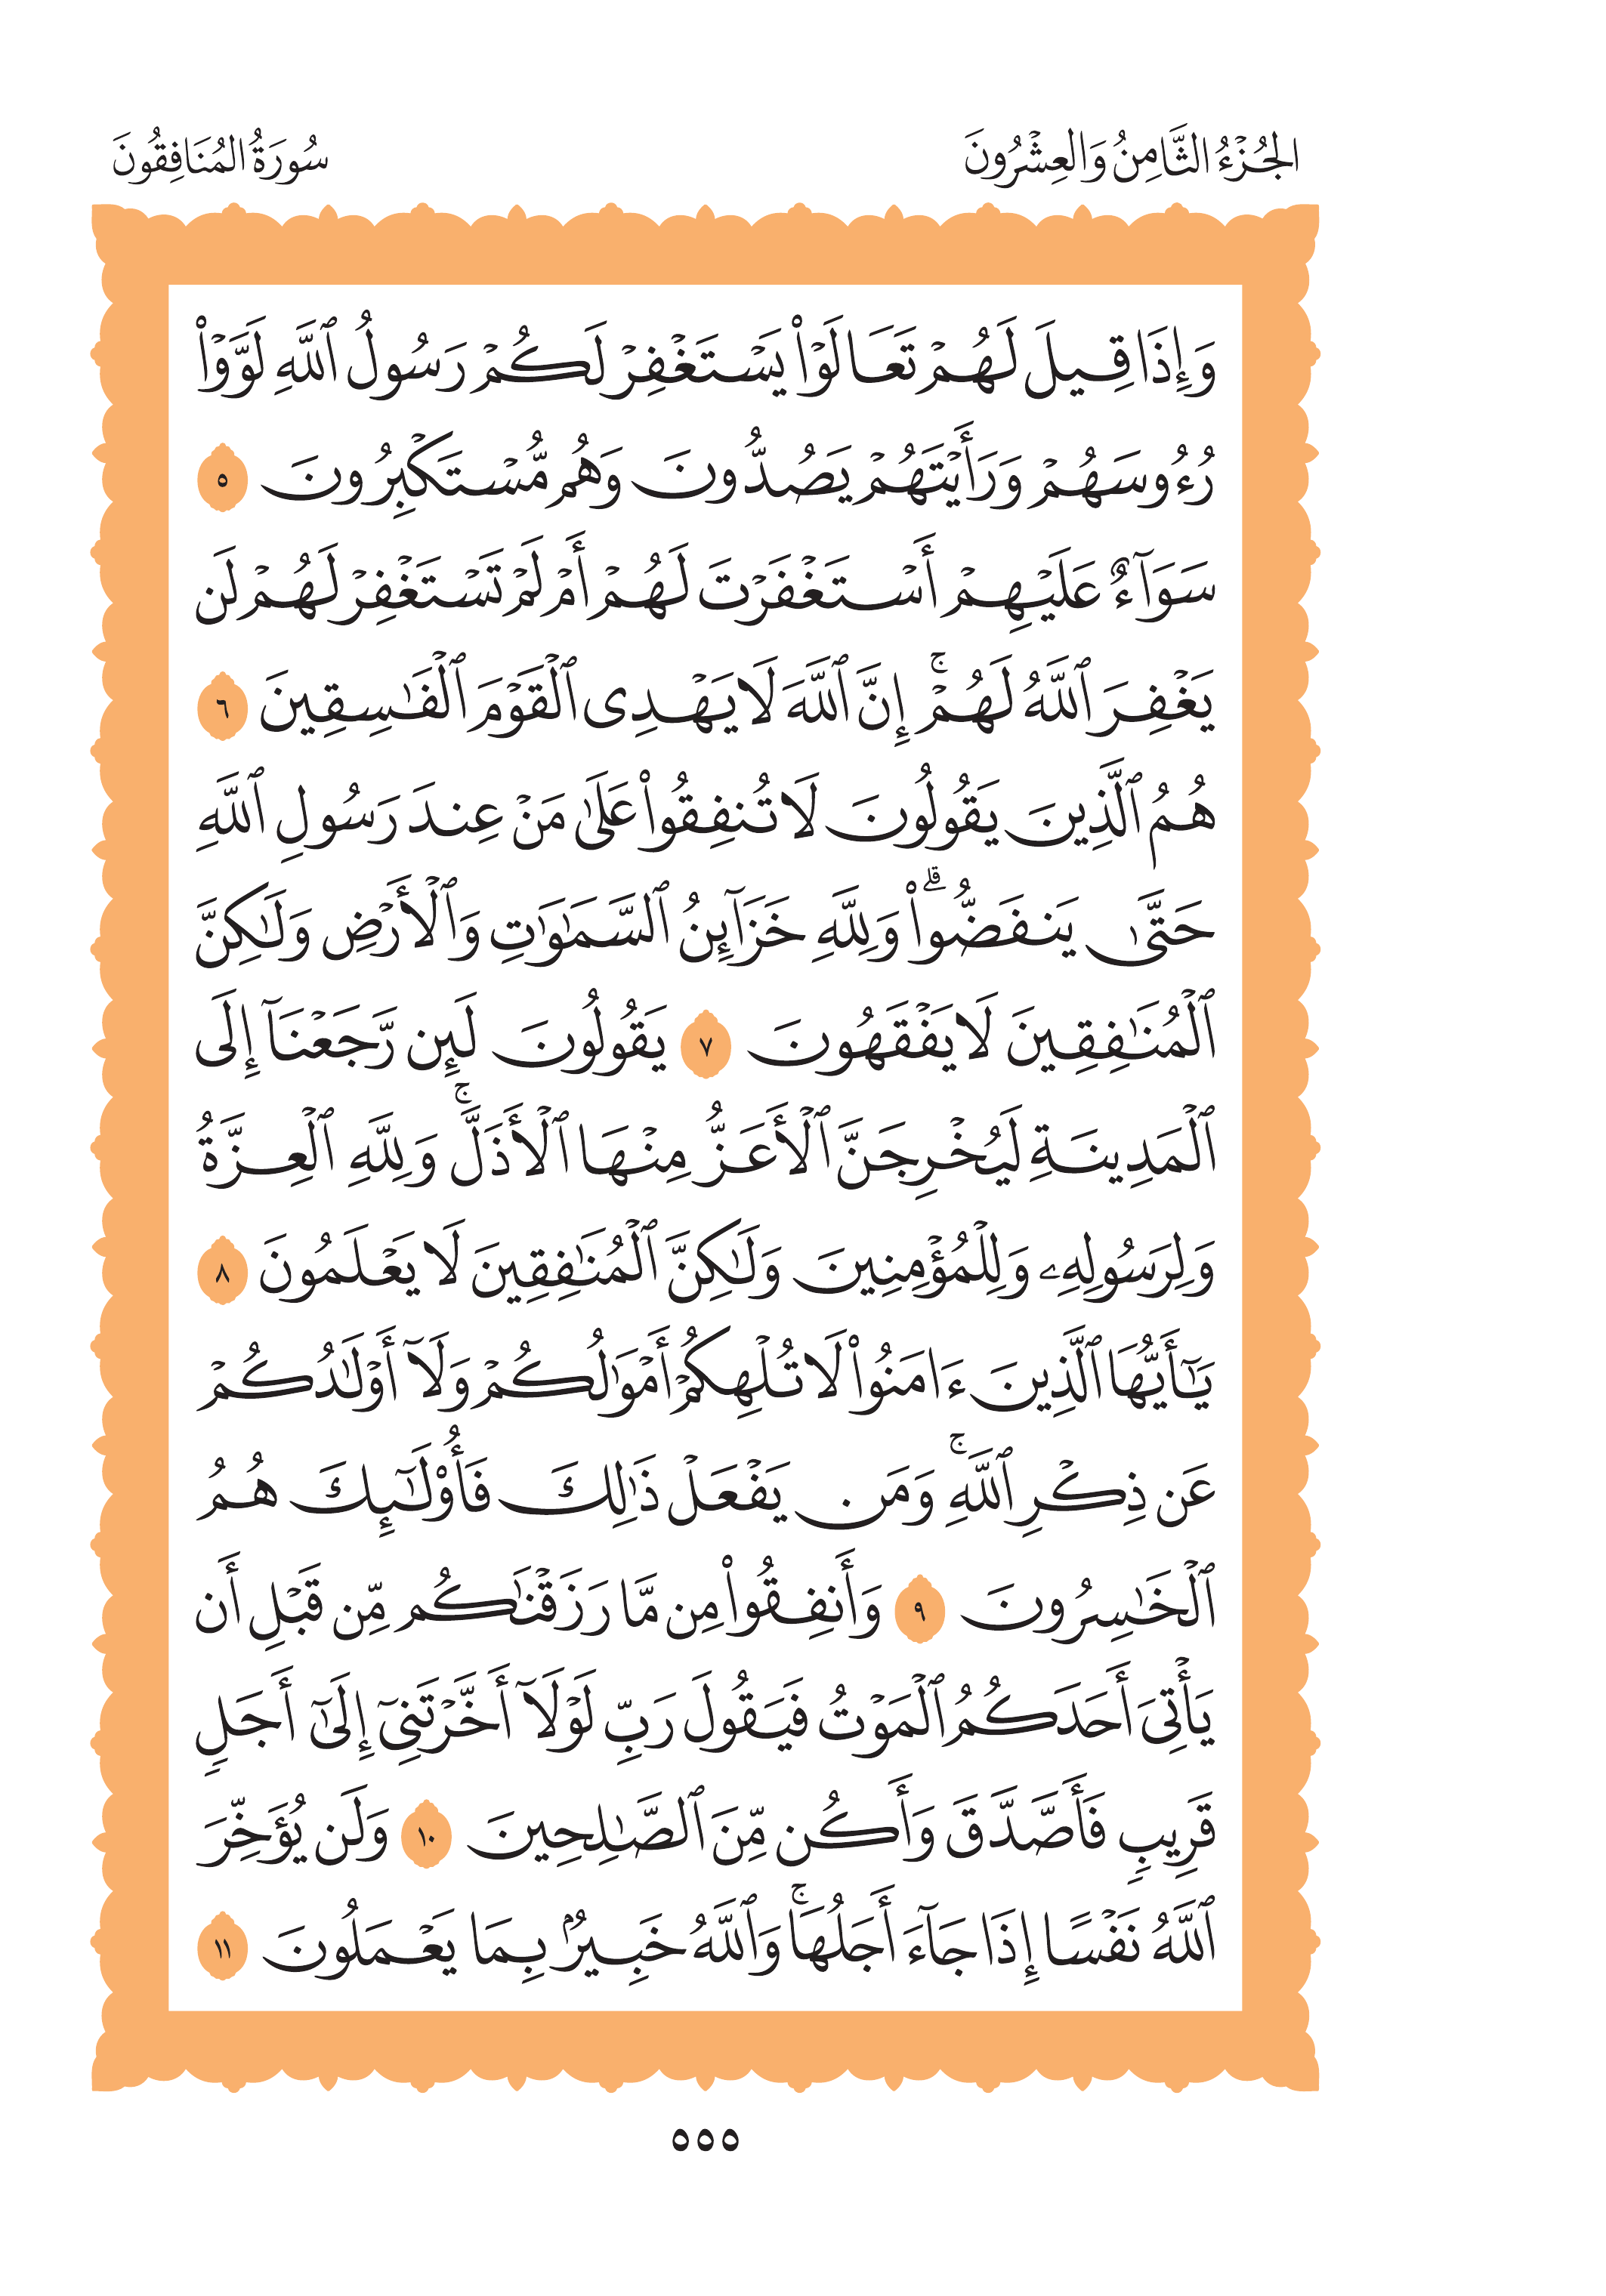 الجُزْءُ الثَّامِنُ وَالعِشْرُونَ
سُورَةُ المُنَافِقُونَ
وَإِذَا قِيلَ لَهُمۡ تَعَالَوۡاْ يَسۡتَغۡفِرۡ لَكُمۡ رَسُولُ ٱللَّهِ لَوَّوۡاْ
رُءُوسَهُمۡ وَرَأَيۡتَهُمۡ يَصُدُّونَ وَهُم مُّسۡتَكۡبِرُونَ ٥
سَوَآءٌ عَلَيۡهِمۡ أَسۡتَغۡفَرۡتَ لَهُمۡ أَمۡ لَمۡ تَسۡتَغۡفِرۡ لَهُمۡ لَن
يَغۡفِرَ ٱللَّهُ لَهُمۡۚ إِنَّ ٱللَّهَ لَا يَهۡدِى ٱلۡقَوۡمَ ٱلۡفَٰسِقِينَ ٦
هُمُ ٱلَّذِينَ يَقُولُونَ لَا تُنفِقُواْ عَلَىٰ مَنۡ عِندَ رَسُولِ ٱللَّهِ
حَتَّىٰ يَنفَضُّواْۗ وَلِلَّهِ خَزَآئِنُ ٱلسَّمَٰوَٰتِ وَٱلۡأَرۡضِ وَلَٰكِنَّ
ٱلۡمُنَٰفِقِينَ لَا يَفۡقَهُونَ ٧ يَقُولُونَ لَئِن رَّجَعۡنَآ إِلَى
ٱلۡمَدِينَةِ لَيُخۡرِجَنَّ ٱلۡأَعَزُّ مِنۡهَا ٱلۡأَذَلَّۚ وَلِلَّهِ ٱلۡعِزَّةُ
وَلِرَسُولِهِۦ وَلِلۡمُؤۡمِنِينَ وَلَٰكِنَّ ٱلۡمُنَٰفِقِينَ لَا يَعۡلَمُونَ ٨
يَٰٓأَيُّهَا ٱلَّذِينَ ءَامَنُواْ لَا تُلۡهِكُمۡ أَمۡوَٰلُكُمۡ وَلَآ أَوۡلَٰدُكُمۡ
عَن ذِكۡرِ ٱللَّهِۚ وَمَن يَفۡعَلۡ ذَٰلِكَ فَأُوْلَٰٓئِكَ هُمُ
ٱلۡخَٰسِرُونَ ٩ وَأَنفِقُواْ مِن مَّا رَزَقۡنَٰكُم مِّن قَبۡلِ أَن
يَأۡتِىَ أَحَدَكُمُ ٱلۡمَوۡتُ فَيَقُولَ رَبِّ لَوۡلَآ أَخَّرۡتَنِىٓ إِلَىٰٓ أَجَلٖ
قَرِيبٖ فَأَصَّدَّقَ وَأَكُن مِّنَ ٱلصَّٰلِحِينَ ١٠ وَلَن يُؤَخِّرَ
ٱللَّهُ نَفۡسًا إِذَا جَآءَ أَجَلُهَاۚ وَٱللَّهُ خَبِيرُۢ بِمَا يَعۡمَلُونَ ١١
٥٥٥